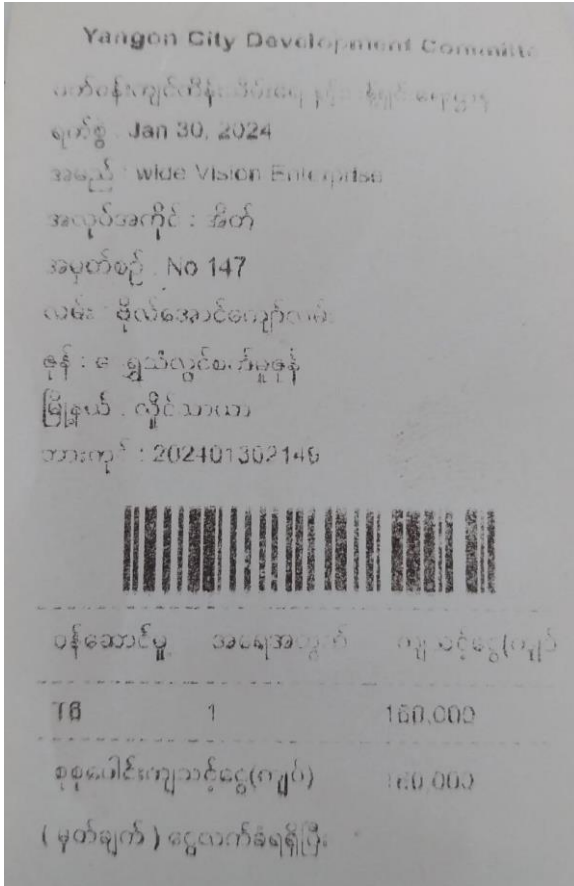 Yangon City Development Committe
ပတ်ဝန်းကျင်ထိန်းသိမ်းရေး နှင့် သန့်ရှင်းရေးဌာန
ရက်စွဲ : Jan 30, 2024
အမည် : wide Vision Enterprise
အလုပ်အကိုင် : အိတ်
အမှတ်စဉ် : No 147
လမ်း : ဗိုလ်အောင်ကျော်လမ်း
ဇုန် : ရွှေသံလွင်စက်မှုဇုန်
မြို့နယ် : လှိုင်သာယာ
ဘားကုဒ် : 202401302149
ဝန်ဆောင်မှု အရေအတွက် ကျသင့်ငွေ(ကျပ်
1
စုစုပေါင်းကျသင့်ငွေ(ကျပ်)
( မှတ်ချက် ) ငွေလက်ခံရရှိပြီး